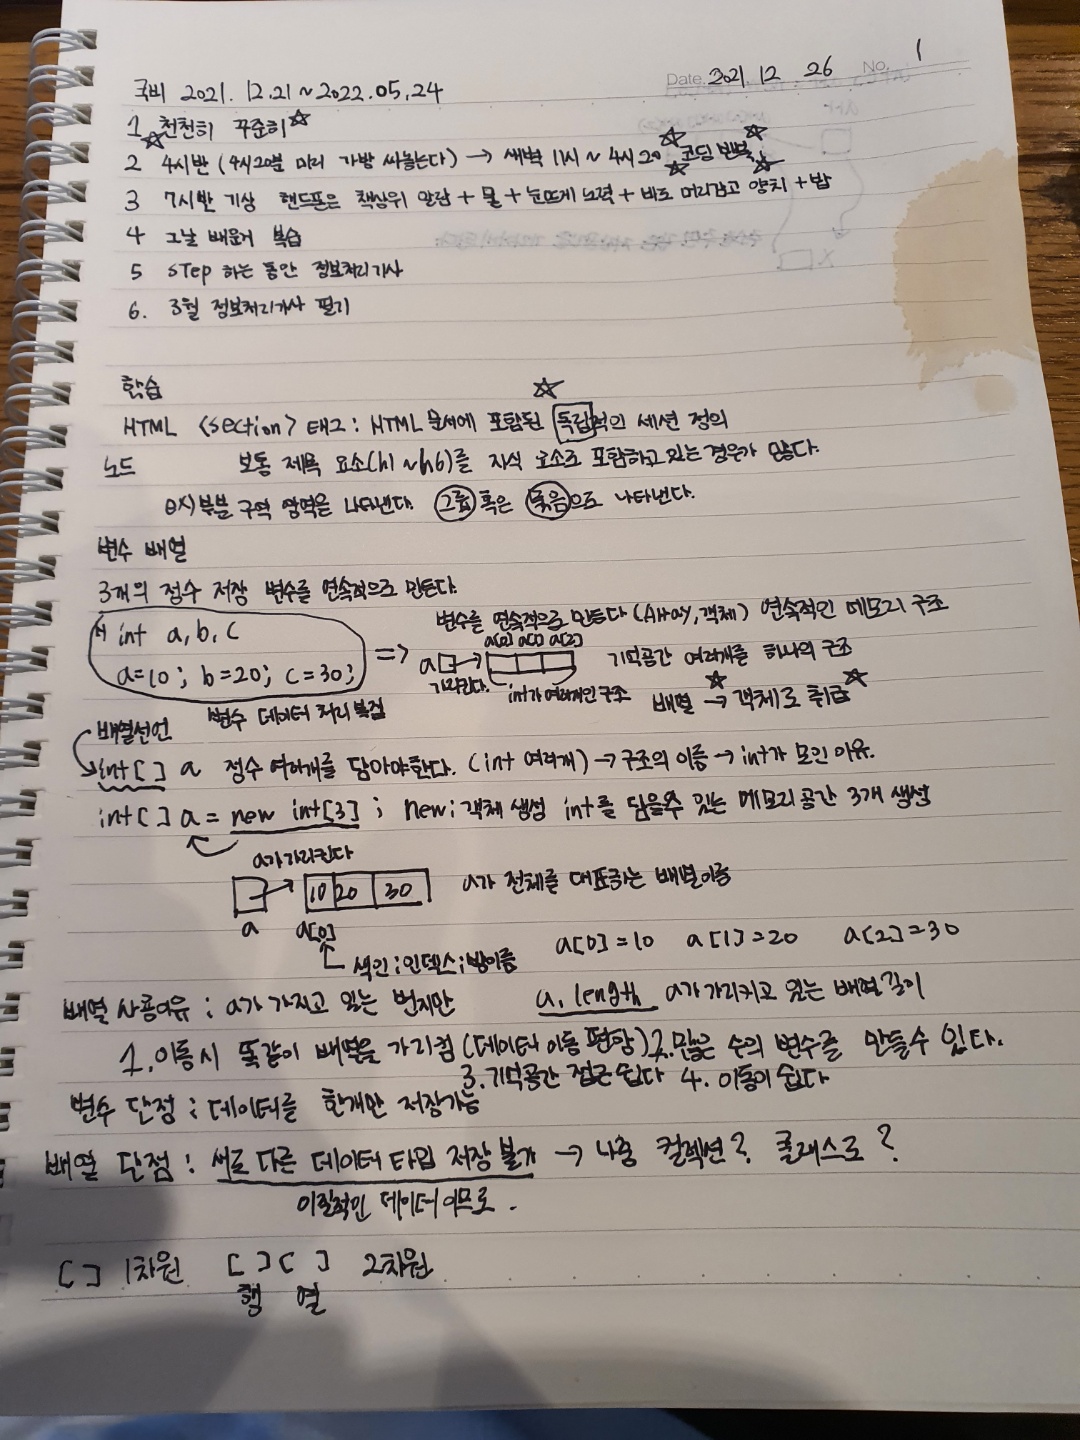 Date. 2021. 12. 26 No. 1
국비 2021. 12.21 ~ 2022.05.24
1 천천히 꾸준히
2 4시반 (4시20분 미리 가방 싸놓는다) → 새벽 11시 ~ 4시 20 코딩 반복
3 7시반 기상 핸드폰은 책상위 알람 + 물 + 눈뜨게 노력 + 바로 머리감고 양치 + 밥
4 그날 배운거 복습
5 step 하는 동안 정보처리기사
6. 3월 정보처리기사 필기
학습
HTML <section> 태그 : HTML 문서에 포함된 독립적인 세션 정의
노드 보통 제목 요소(h1 ~ h6)를 자식 요소로 포함하고 있는 경우가 많다.
구역 영역을 나타낸다. 그룹 혹은 묶음으로 나타낸다.
변수 배열
3개의 정수 저장 변수를 연속적으로 만든다.
int a, b, c
a=10; b=20; c=30;
=>
변수를 연속적으로 만든다 (Array, 객체) 연속적인 메모리 구조
a[0] a[1] a[2]
a → 기억공간 여러개를 하나의 구조
가리킨다. int가 여러개인 구조 배열 → 객체로 취급
변수 데이터 처리 복잡
배열선언
int[ ] a 정수 여러개를 담아야한다. (int 여러개) → 구조의 이름 → int가 모인 이유.
int[ ] a = new int[3] ; new ; 객체 생성 int를 담을수 있는 메모리 공간 3개 생성
a가 가리킨다
10 20 30 a가 전체를 대표하는 배열이름
a a[0]
a[0] = 10 a[1] = 20 a[2] = 30
색인 ; 인덱스 ; 방이름
배열 사용이유 : a가 가지고 있는 번지만 a. length a가 가리키고 있는 배열 길이
1. 이동시 똑같이 배열을 가리킴 (데이터 이동 편함) 2. 많은 수의 변수를 만들수 있다.
3. 기억공간 접근 쉽다 4. 이동이 쉽다
변수 단점 : 데이터를 한개만 저장가능
배열 단점 : 서로 다른 데이터 타입 저장 불가 → 나중 컬렉션? 클래스로?
이질적인 데이터 이므로.
[ ] 1차원 [ ][ ] 2차원
행 열